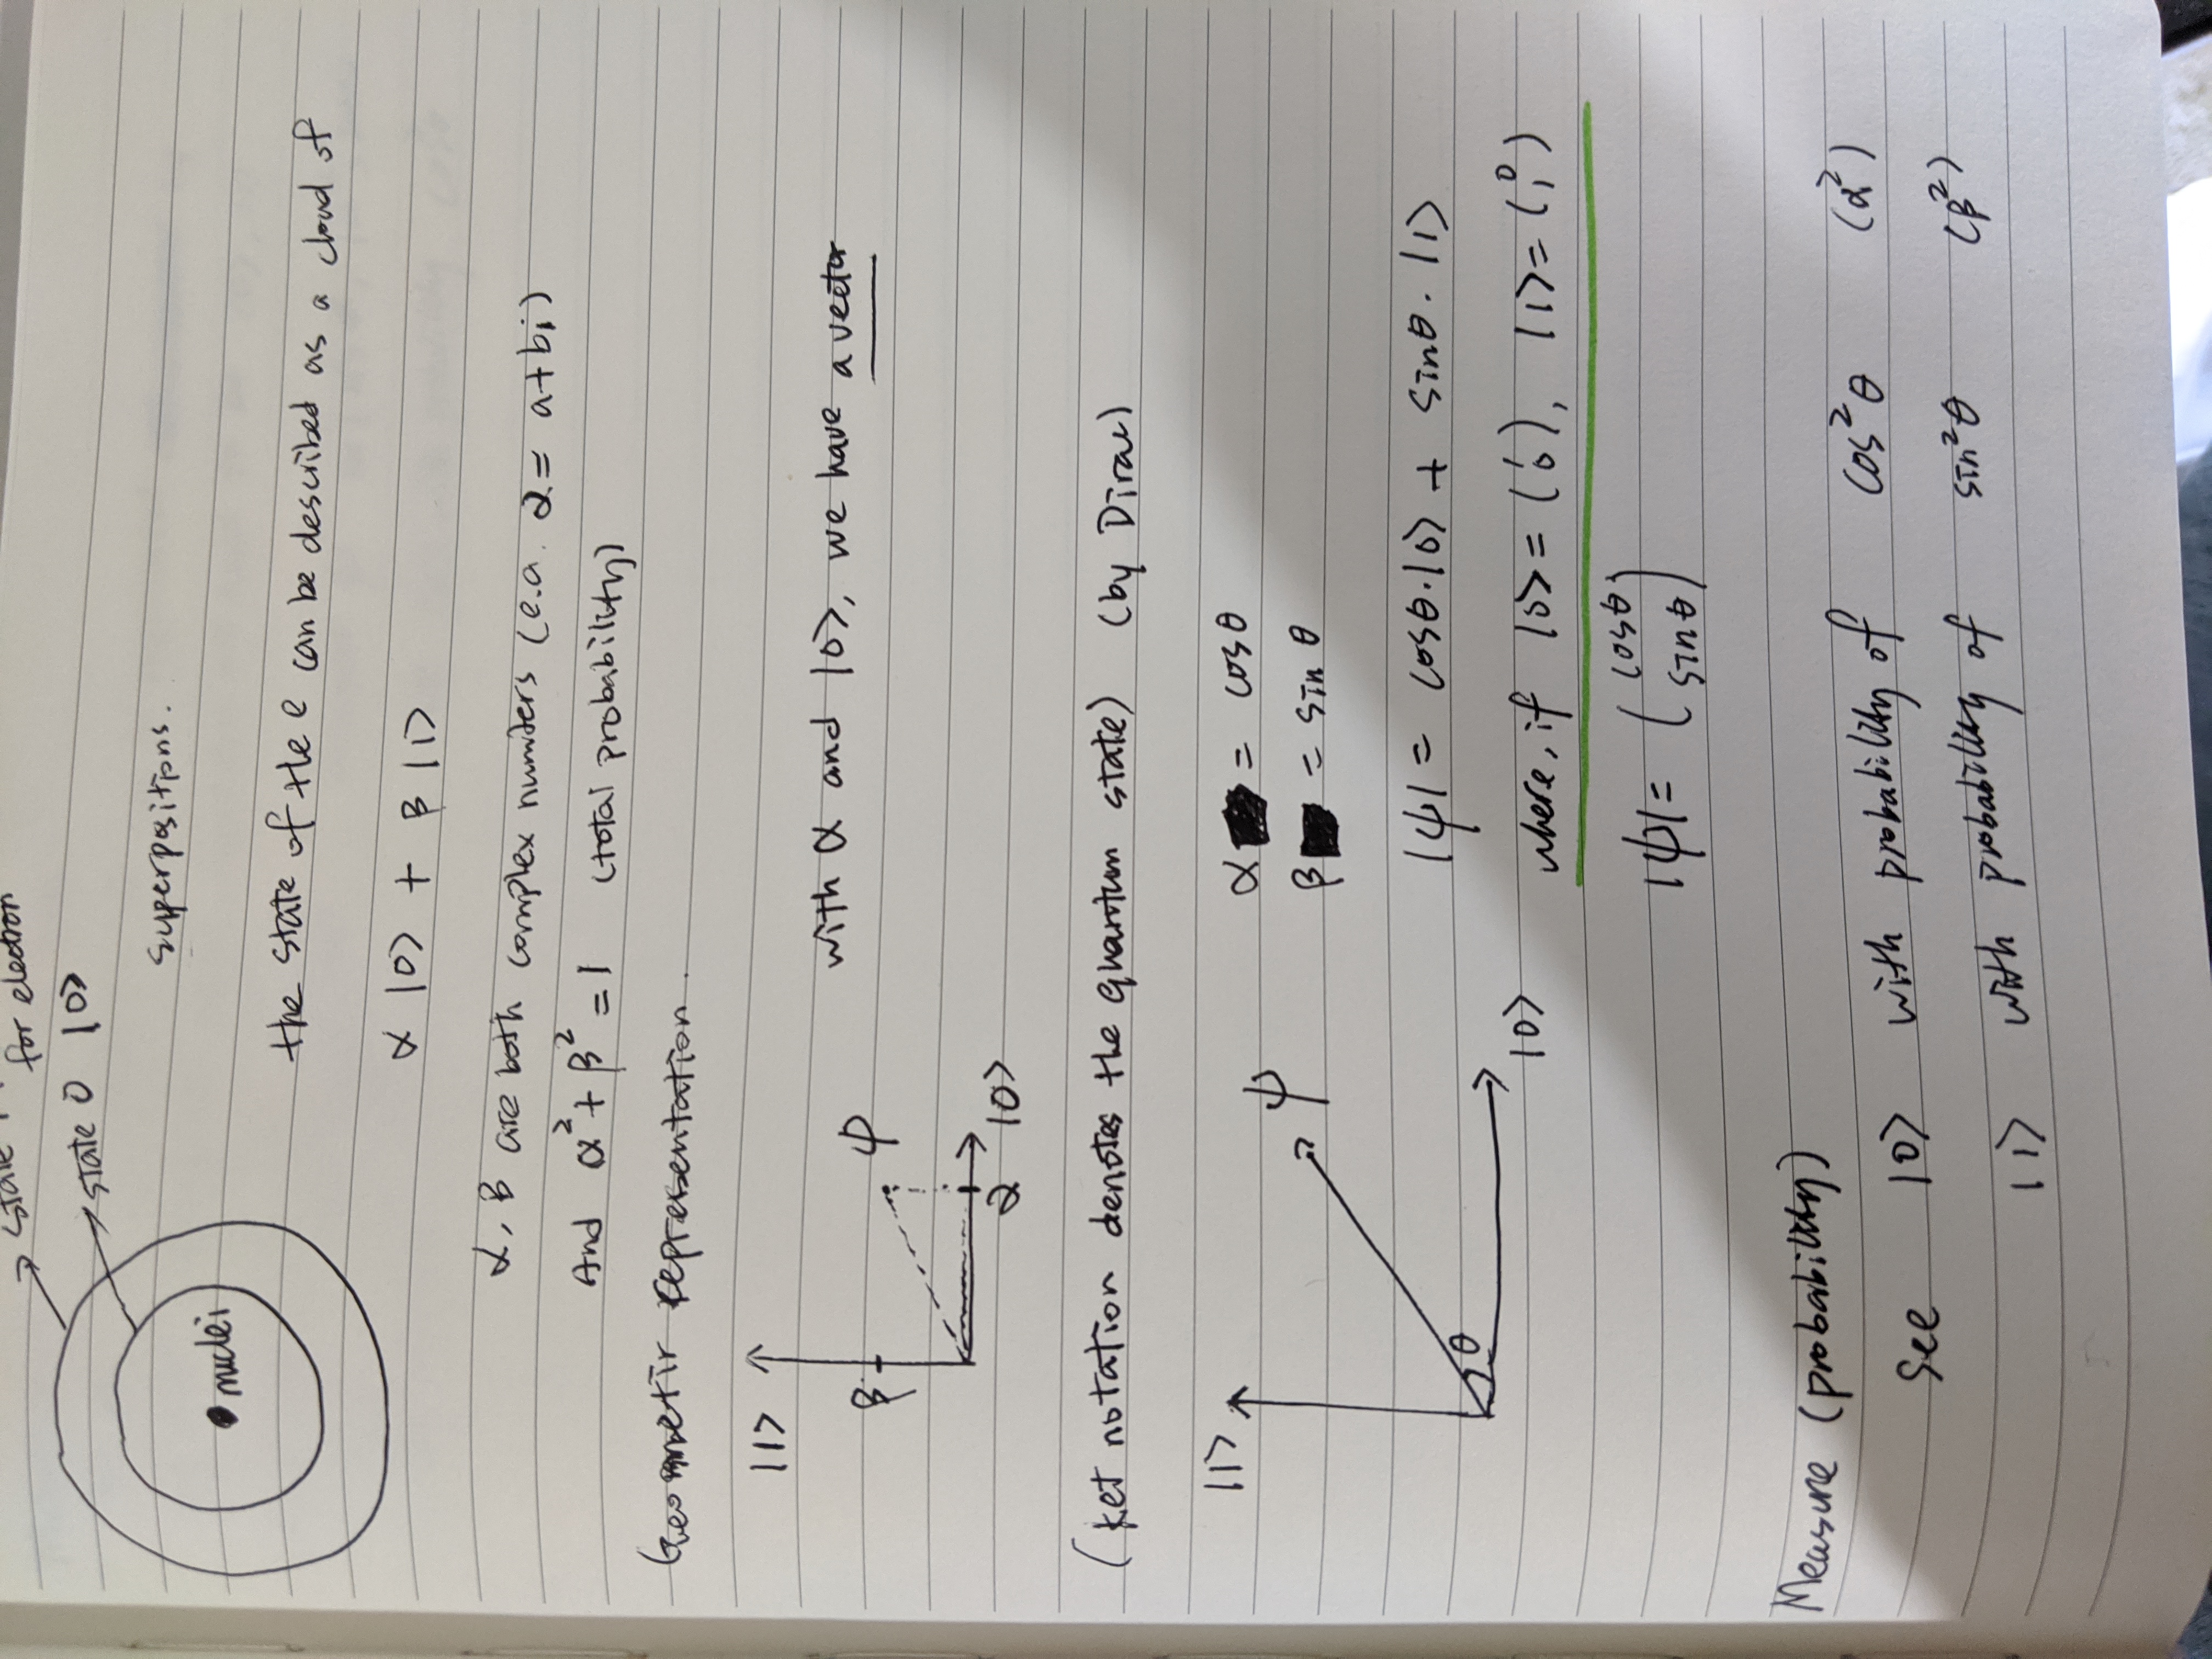 state
for electron
state 0 |0>
nuclei
superpositions.
the state of the e can be described as a cloud of
α |0> + β |1>
α, β are both complex numbers (e.a. α = a+bi)
And α² + β² = 1 (total probability)
Geometir representation.
|1>
β
ψ
with α and |0>, we have a vector
α |0>
(ket notation denotes the quantum state) (by Dirac)
|1>
ψ
θ
|0>
α = cosθ
β = sin θ
|ψ| = cosθ·|0> + sinθ·|1>
where, if |0> = (1 0), |1> = (0 1)
|ψ| = (cosθ
sinθ)
Measure (probability)
See |0> with probability of cos²θ (α²)
|1> with probability of sin²θ (β²)